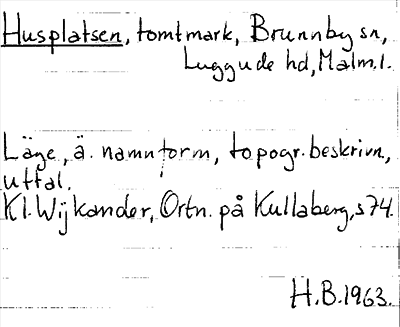 Husplatsen, tomtmark, Brunnby sn,
Luggude hd, Malm.l.
Läge, ä. namnform, topogr. beskrivn,
uttal.
Kl. Wijkander, Ortn. på Kullaberg, s 74.
H.B. 1963.